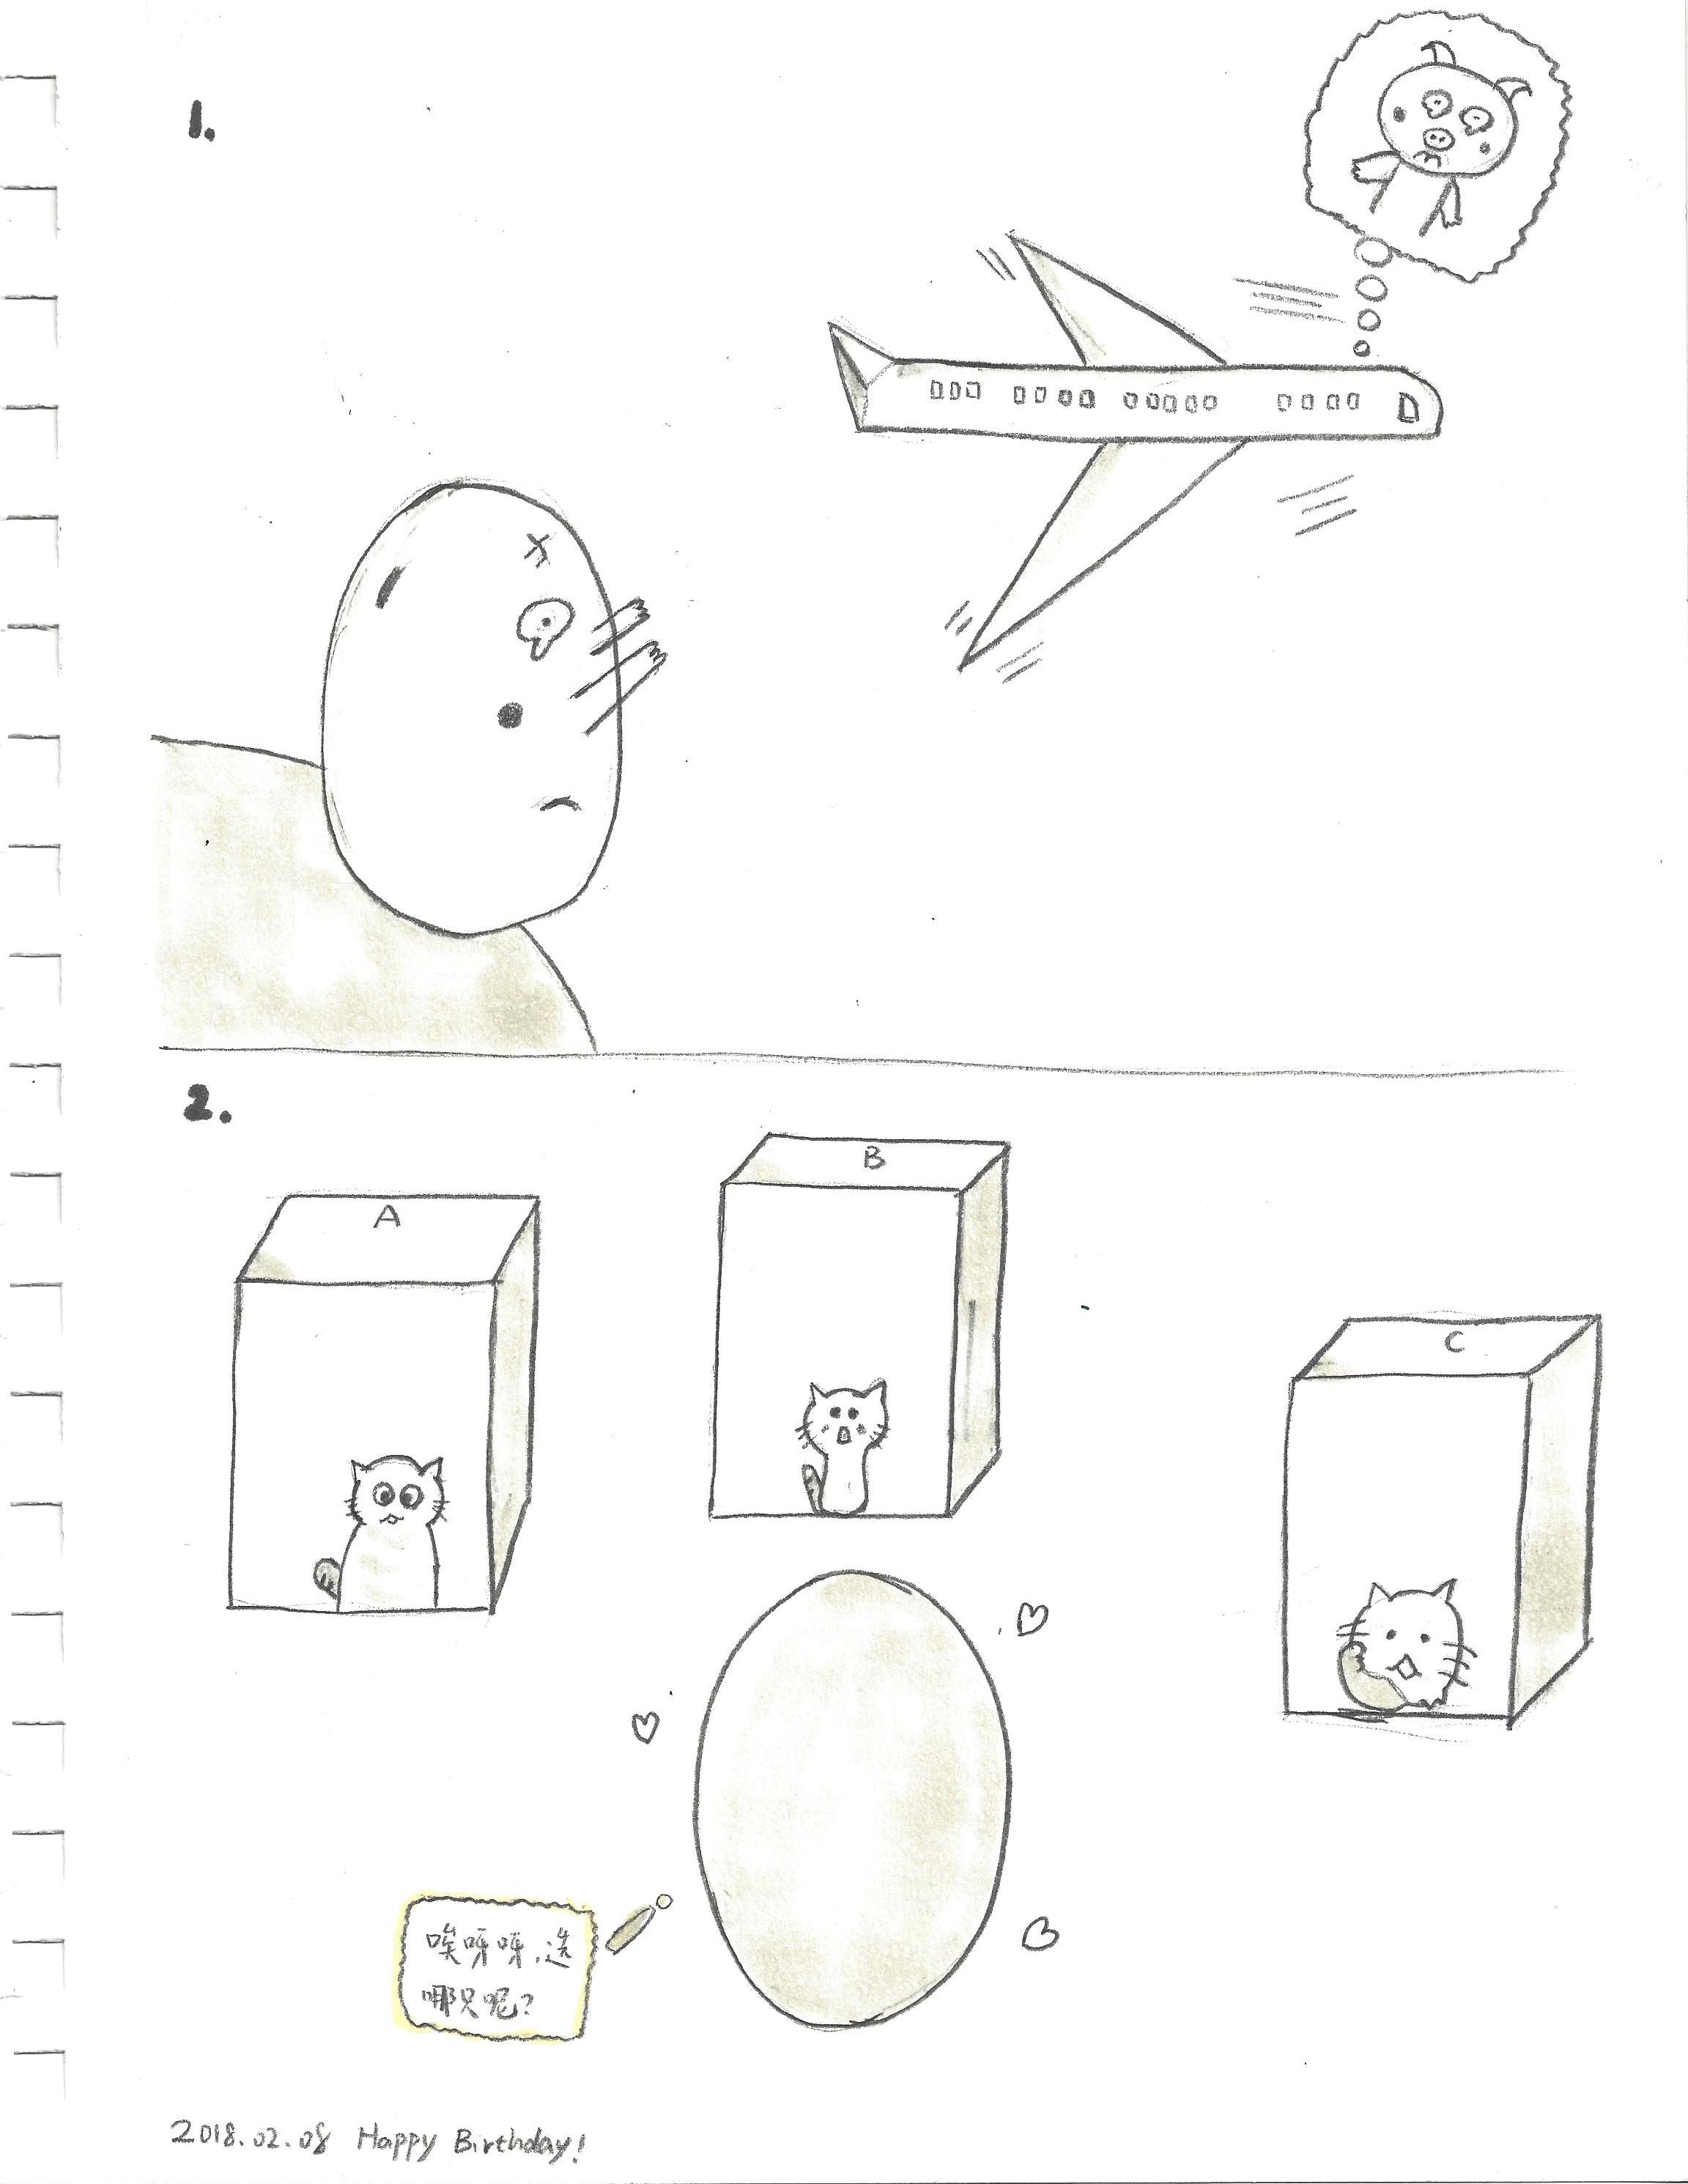 1.
2.
A
B
C
唉呀呀,选
哪只呢?
2018.02.08 Happy Birthday!